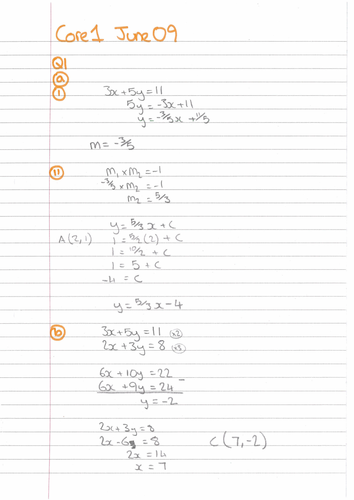 Core 1 June 09
Q1
a
i
3x+5y=11
5y=-3x+11
y=-3/5x+11/5
m=-3/5
ii
m₁×m₂=-1
-3/5×m₂=-1
m₂=5/3
y=5/3x+c
A(2,1) 1=5/2(2)+c
1=10/2+c
1=5+c
-4=c
y=5/3x-4
b
3x+5y=11 ×2
2x+3y=8 ×3
6x+10y=22
6x+9y=24 -
y=-2
2x+3y=8
2x-6=8 C(7,-2)
2x=14
x=7